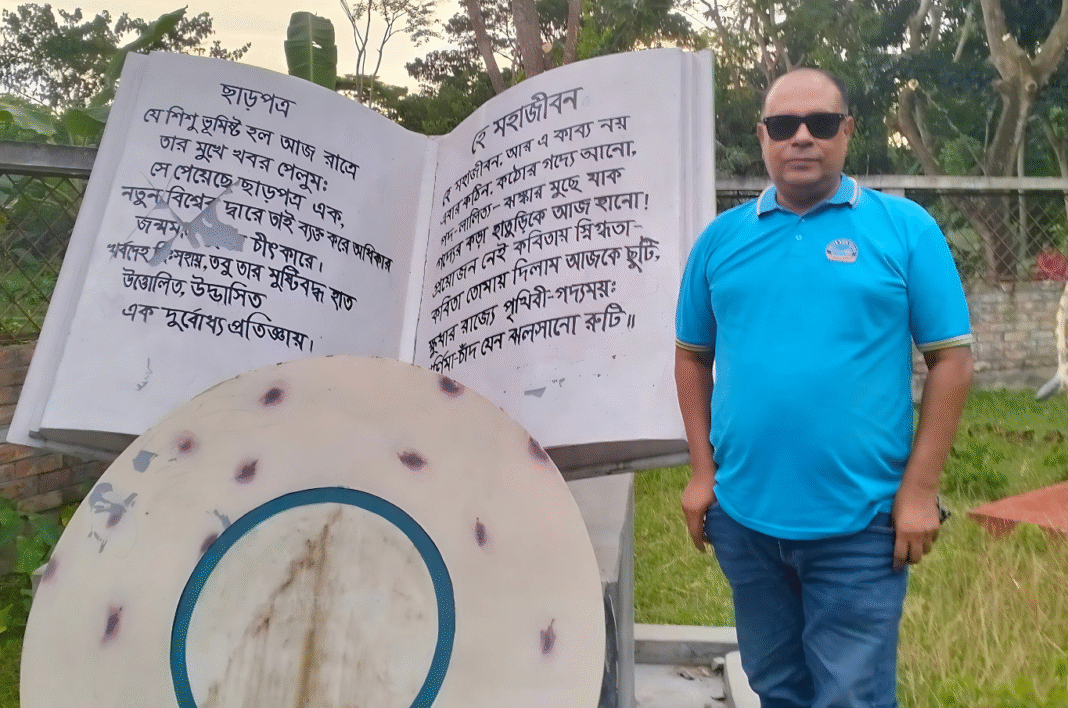 ছাড়পত্র
যে শিশু ভূমিষ্ট হল আজ রাত্রে
তার মুখে খবর পেলুম:
সে পেয়েছে ছাড়পত্র এক,
নতুন বিশ্বের দ্বারে তাই ব্যক্ত করে অধিকার
চীৎকারে।
তবু তার মুষ্টিবদ্ধ হাত
উত্তোলিত, উদ্ভাসিত
এক দুর্বোধ্য প্রতিজ্ঞায়।
হে মহাজীবন
হে মহাজীবন: আর এ কাব্য নয়
এবার কঠিন, কঠোর গদ্যে আনো,
পদ-লালিত্য- ঝঙ্কার মুছে যাক
গদ্যের কড়া হাতুড়িকে আজ হানো!
প্রয়োজন নেই কবিতায় স্নিগ্ধতা-
কবিতা তোমায় দিলাম আজকে ছুটি,
ক্ষুধার রাজ্যে পৃথিবী-গদ্যময়:
চাঁদ যেন ঝলসানো রুটি॥